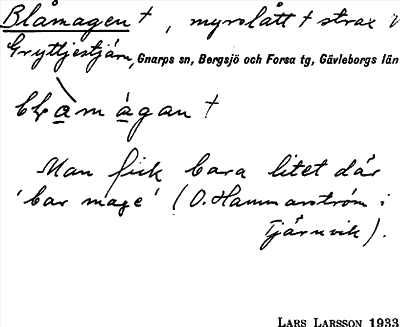 Blåmagen †, myrslått † strax v
Gryttjestjärn, Gnarps sn, Bergsjö och Forsa tg, Gävleborgs län
Man fick bara litet där
'bar mage' (O. Hammarström i
Tjärnvik).
LARS LARSSON 1933